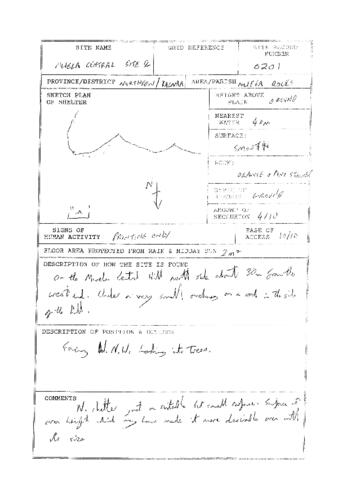 SITE NAME GRID REFERENCE SITE RECORD NUMBER
CENTRAL SITE 2 0201
PROVINCE/DISTRICT NORTHERN/ AREA/PARISH ROCKS
SKETCH PLAN OF SHELTER HEIGHT ABOVE PLAIN GROUND
NEAREST WATER 4 Km
SURFACE:
SMOOTH
ROCK:
ORANGE
GROUND
AMOUNT OF SECLUSION 4/10
N
SIGNS OF HUMAN ACTIVITY PAINTING ONLY EASE OF ACCESS 10/10
FLOOR AREA PROTECTED FROM RAIN & MIDDAY SUN 2m²
DESCRIPTION OF HOW THE SITE IS FOUND
On the Central Hill north side about 30m from the
end. Under a very small overhang on a rock in the side
of the hill.
DESCRIPTION OF POSITION & OUTLOOK
Facing W.N.W. looking into Trees.
COMMENTS
No shelter just a suitable but small surface. Surface at
over height which may have made it more desirable even with
its size